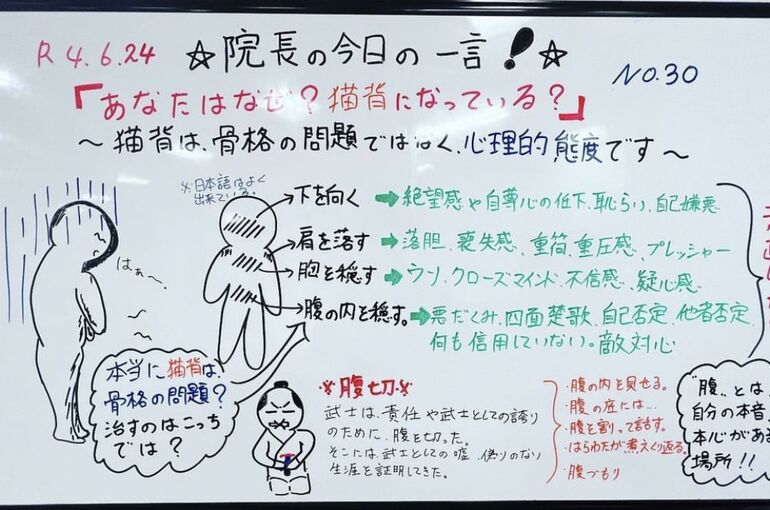 R 4.6.24
☆院長の今日の一言!☆
NO.30
「あなたはなぜ?猫背になっている?」
~猫背は、骨格の問題ではなく、心理的態度です~
※日本語はよく
出来ている。
下を向く
➡絶望感や自尊心の低下、恥らい、自己嫌悪
肩を落す
➡落胆、喪失感、重荷、重圧感、プレッシャー
胸を隠す
➡ウソ、クローズマインド、不信感、疑心感
腹の内を隠す。
➡悪だくみ、四面楚歌、自己否定、他者否定
何も信用していない。敵対心
はぁ〜
本当に猫背は、
骨格の問題?
治すのはこっち
では?
※腹切※
武士は、責任や武士としての誇り
のために、腹を切った。
そこには、武士としての嘘、偽りのなり
生涯を証明してきた。
・腹の内を見せる。
・腹の底には…
・腹を割って話す。
・はらわたが煮えくり返る。
・腹づもり
"腹"とは、
自分の本音、
本心がある
場所!!